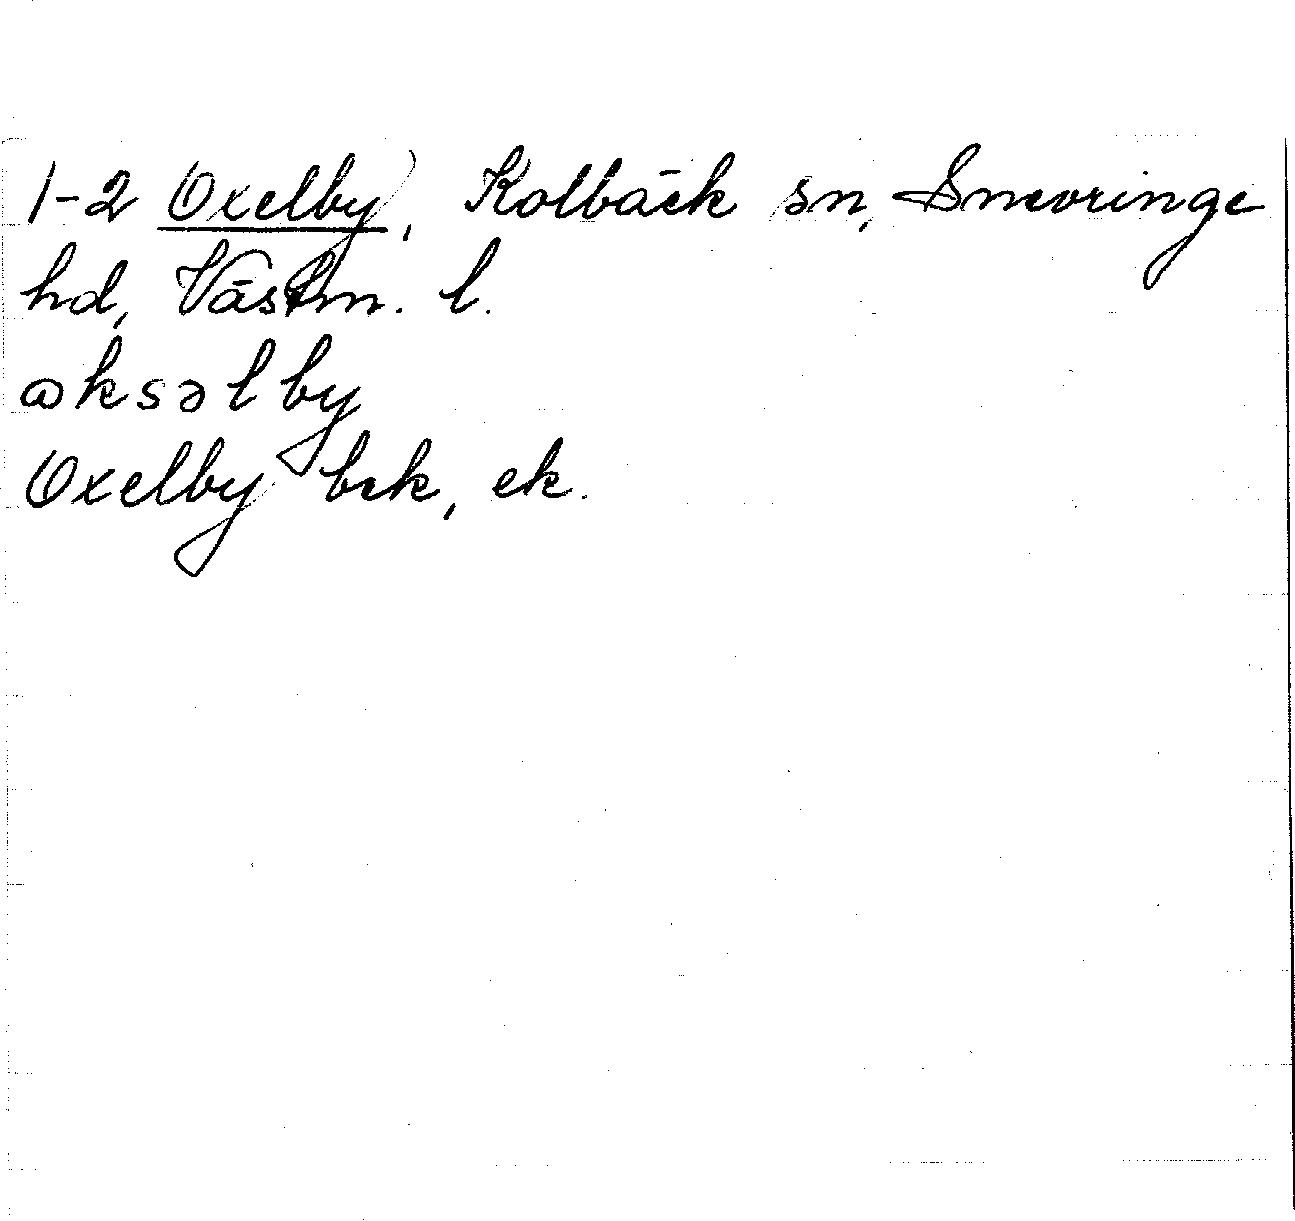 1-2 Oxelby, Kolbäck sn, Snevringe
hd, Västm. l.
ωksəlby
Oxelby bek, ek.